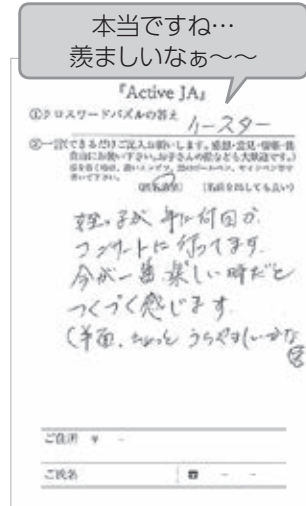 本当ですね…
羨ましいなぁ〜〜
『Active JA』
①クロスワードパズルの答え イースター
②一言(できるだけご記入お願いします。感想・意見・情報・俳
自由にお使い下さい。お子さんの絵なども大歓迎です。)
書いて下さい。
姪っ子が 年に何回か
コンサートに行ってます。
今が一番楽しい時だと
つくづく感じます。
(半面、ちょっと うらやましいかな
ご住所 〒 -
ご氏名 ☎ - -